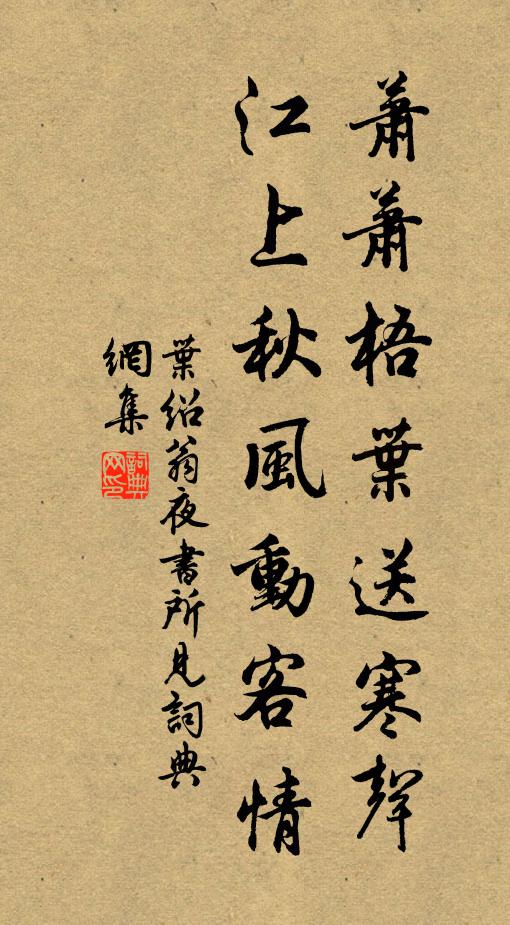 蕭蕭梧葉送寒聲
江上秋風動客情
葉紹翁夜書所見詞典
網集
詞典網印